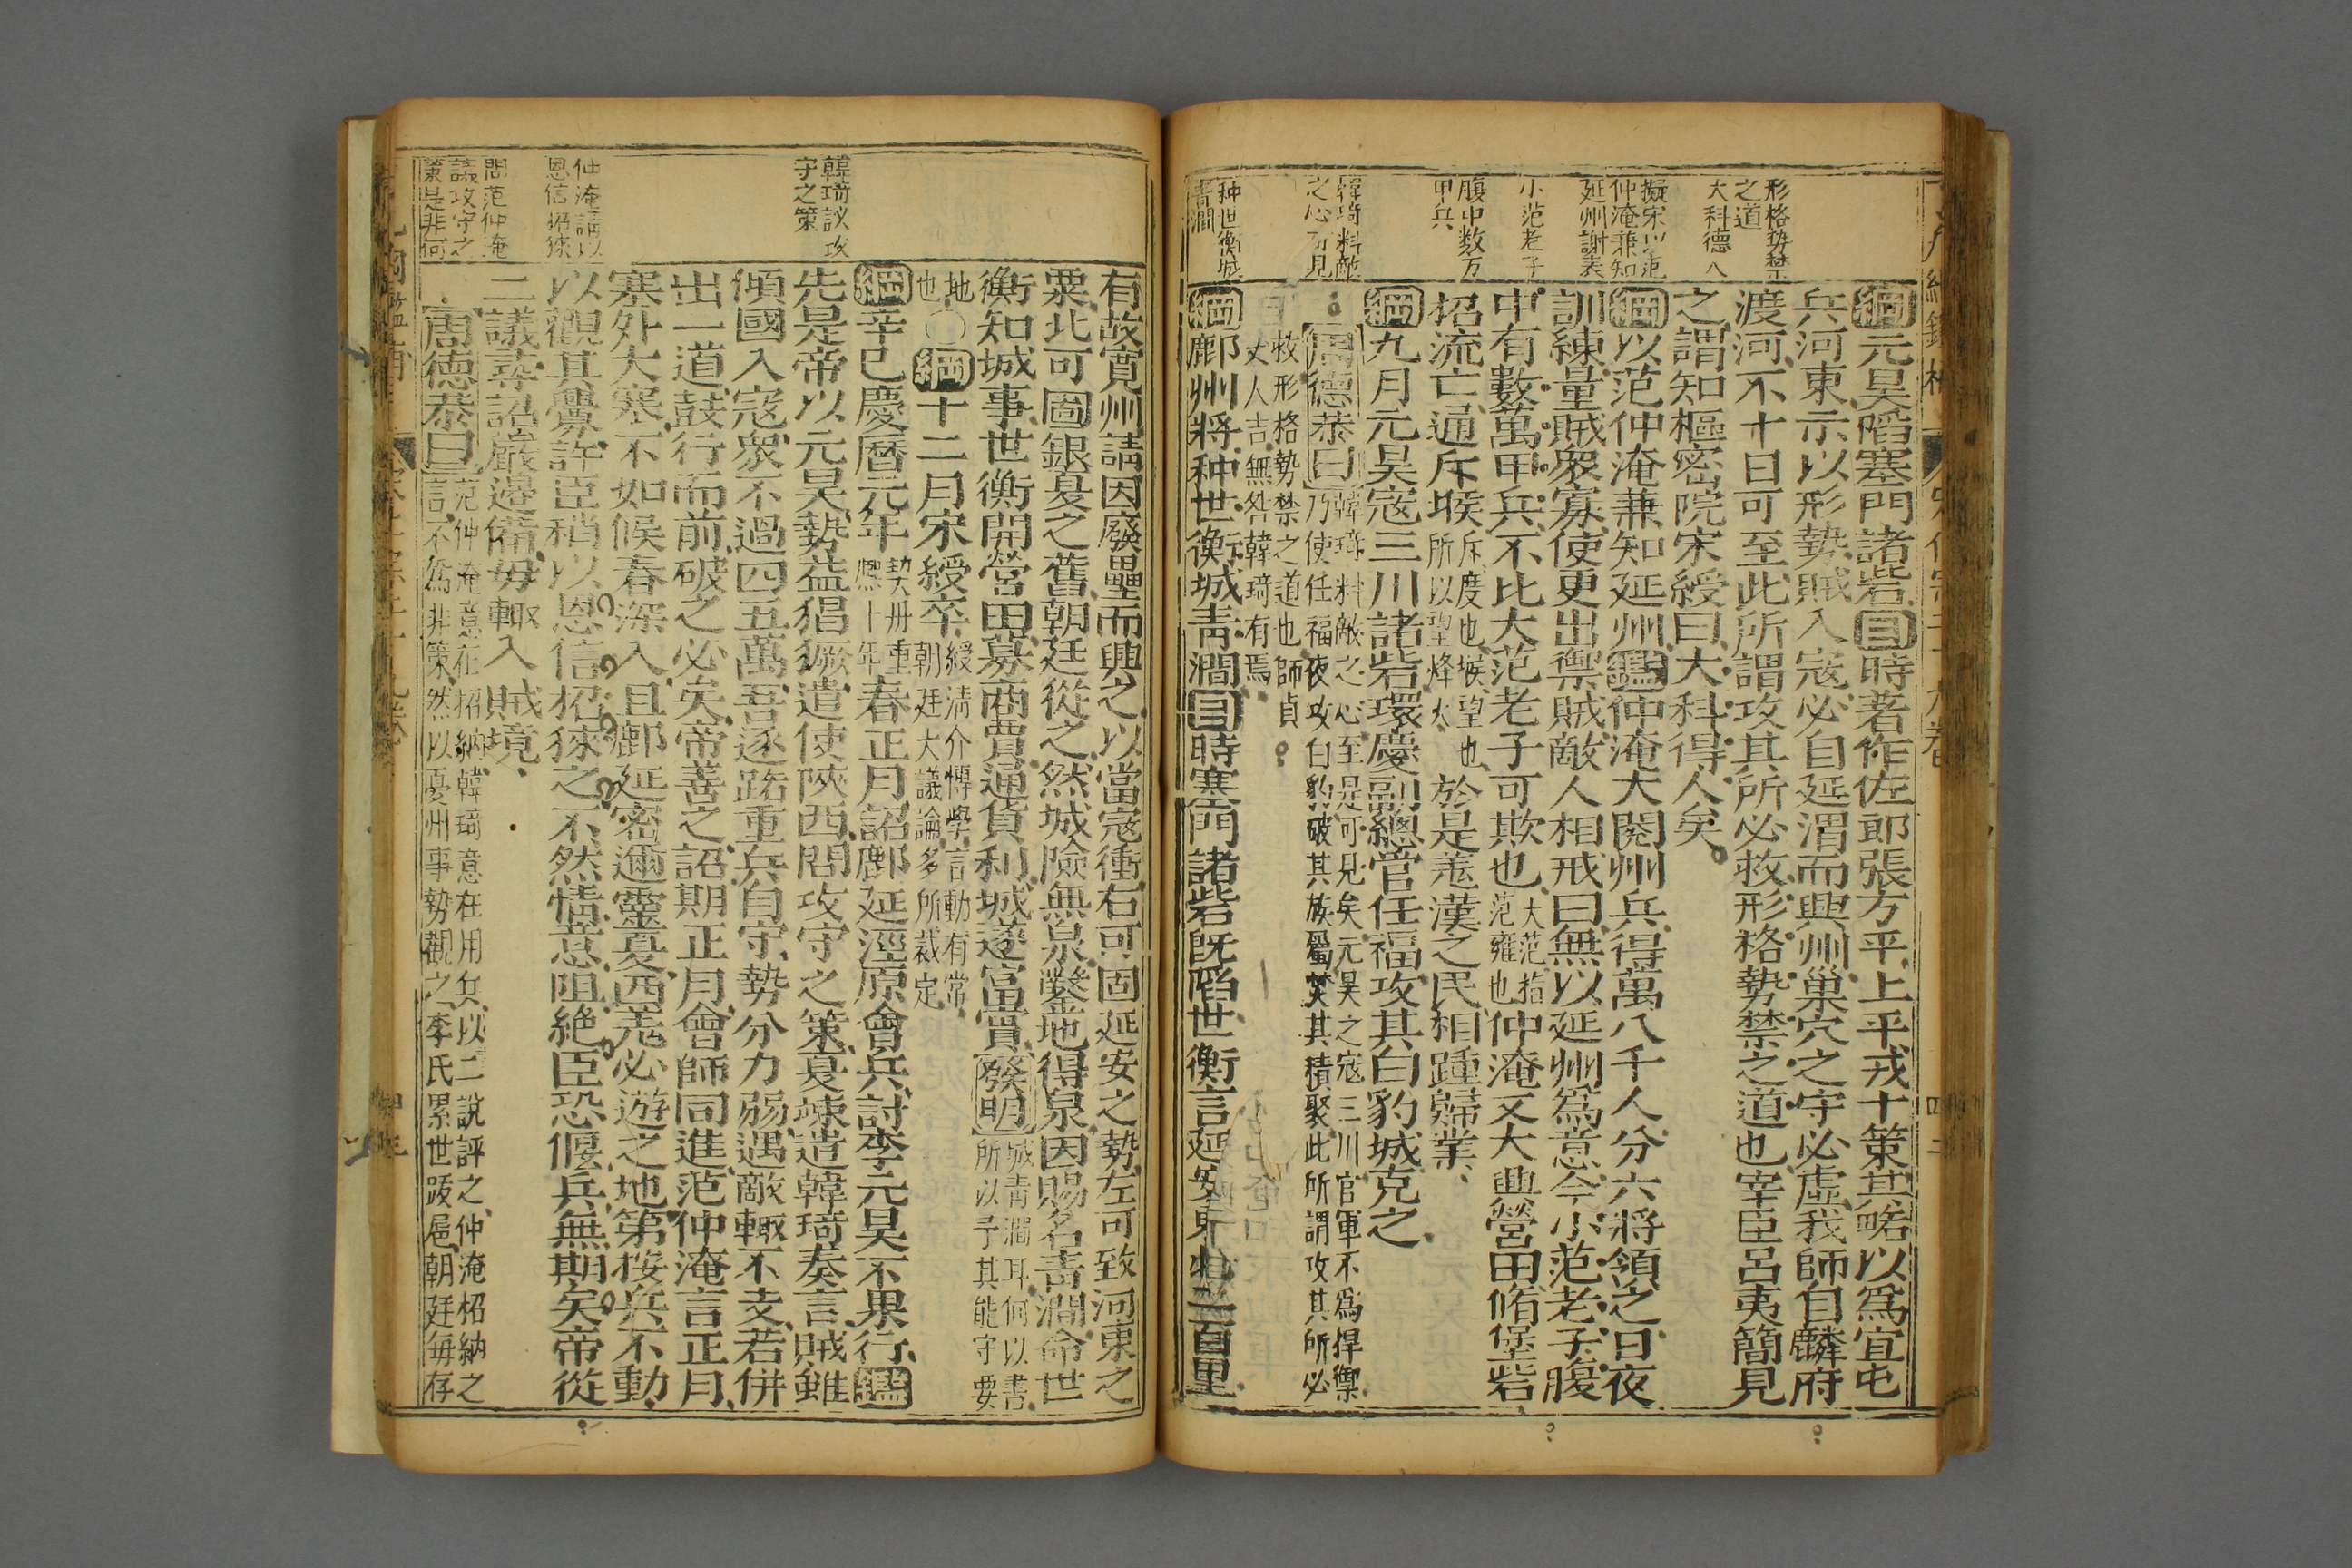 形格勢禁
之道
大科德人
擬宋以范
仲淹兼知
延州謝表
小范老子
腹中数万
甲兵
韓琦料敵
之心可見
种世衡城
青澗
綱元昊陷塞門諸砦目時著作佐郎張方平上平戎十策其略以爲宜屯
兵河東示以形勢賊入寇必自延渭而興州巢穴之守必虛我師自麟府
渡河不十日可至此所謂攻其所必救形格勢禁之道也宰臣呂夷簡見
之謂知樞密院宋綬曰大科得人矣
綱以范仲淹兼知延州鑑仲淹大閱州兵得萬八千人分六將領之日夜
訓練量賊眾寡使更出禦賊敵人相戒曰無以延州爲意今小范老子腹
中有數萬甲兵不比大范老子可欺也大范指范雍也仲淹又大興營田脩堡砦
招流亡通斥堠斥度也堠望也所以望烽火於是羌漢之民相踵歸業
綱九月元昊寇三川諸砦環慶副總管任福攻其白豹城克之
周德恭曰韓琦料敵之心至是可見矣元昊之寇三川官軍不爲捍禦
乃使任福夜攻白豹破其族屬焚其積聚此所謂攻其所必
救形格勢禁之道也師貞
丈人吉無咎韓琦有焉
綱鄜州將种世衡城青澗目時塞門諸砦既陷世衡言延安東北二百里
韓琦議攻
守之策
仲淹請以
恩信招徠
問范仲淹
議攻守之
策是非何
有故寬州請因廢壘而興之以當寇衝右可固延安之勢左可致河東之
粟北可圖銀夏之舊朝廷從之然城險無泉鑿地得泉因賜名青澗命世
衡知城事世衡開營田募商賈通貨利城遂富實發明城青澗耳何以書所以予其能守要
地也〇綱十二月宋綬卒綬清介博學言動有常朝廷大議論多所裁定
綱辛巳慶曆元年契丹重熈十年春正月詔鄜延涇原會兵討李元昊不果行鑑
先是帝以元昊勢益猖獗遣使陝西問攻守之策夏竦遣韓琦奏言賊雖
傾國入寇衆不過四五萬吾逐路重兵自守勢分力弱遇敵輒不支若併
出一道鼓行而前破之必矣帝善之詔期正月會師同進范仲淹言正月
塞外大寒不如候春深入且鄜延密邇靈夏西羌必遊之地第按兵不動
以觀其釁許臣稍以恩信招徠之不然情意阻絶臣恐偃兵無期矣帝從
二議尋詔嚴邊備毋輒入賊境
周德恭曰范仲淹意在招納韓琦意在用兵以二說評之仲淹招納之
言不爲非策然以憂州事勢觀之李氏累世跋扈朝廷每存